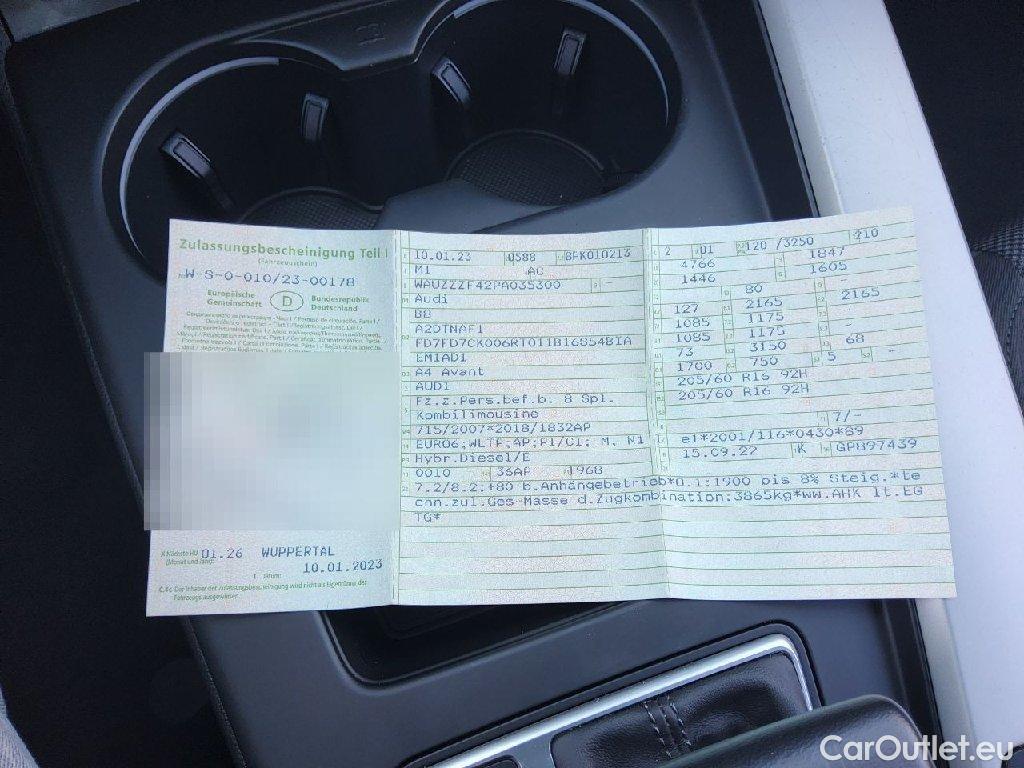 Zulassungsbescheinigung Teil I
(Fahrzeugschein)
W-S-0-010/23-00178
Europäische
Gemeinschaft
D
Bundesrepublik
Deutschland
X Nächste HU
(Monat und Jahr)
01.26 WUPPERTAL
10.01.2023
C.4c Der Inhaber der Zulassungsbescheinigung wird nicht als Eigentümer des
Fahrzeugs ausgewiesen.
10.01.23 0588 BPK010213
M1 AC
WAUZZZF42PA035300 -
Audi
B8
A2DTNAF1
FD7FD7CK006RT011B16854BIA
EM1AD1
A4 Avant
AUDI
Fz.z.Pers.bef.b. 8 Spl.
Kombilimousine
715/2007*2018/1832AP
EURO6;WLTP;AP;PI/CI; M, N1
Hybr.Diesel/E
0010 36AP 1968
7.2/8.2:+80 b.Anhängebetrieb*O.1:1900 bis 8% Steig.*te
chn.zul.Ges-Masse d.Zugkombination:3865kg*WW.AHK lt.EG
TG*
2 01 120 /3250 210
4766 1847
1446 1605
80
127 2165 2165
1085 1175 -
1085 1175 -
73 3150 68
1700 750 5 -
205/60 R16 92H
205/60 R16 92H
7/-
e1*2001/116*0430*89
15.09.22 K GP897439
CarOutlet.eu